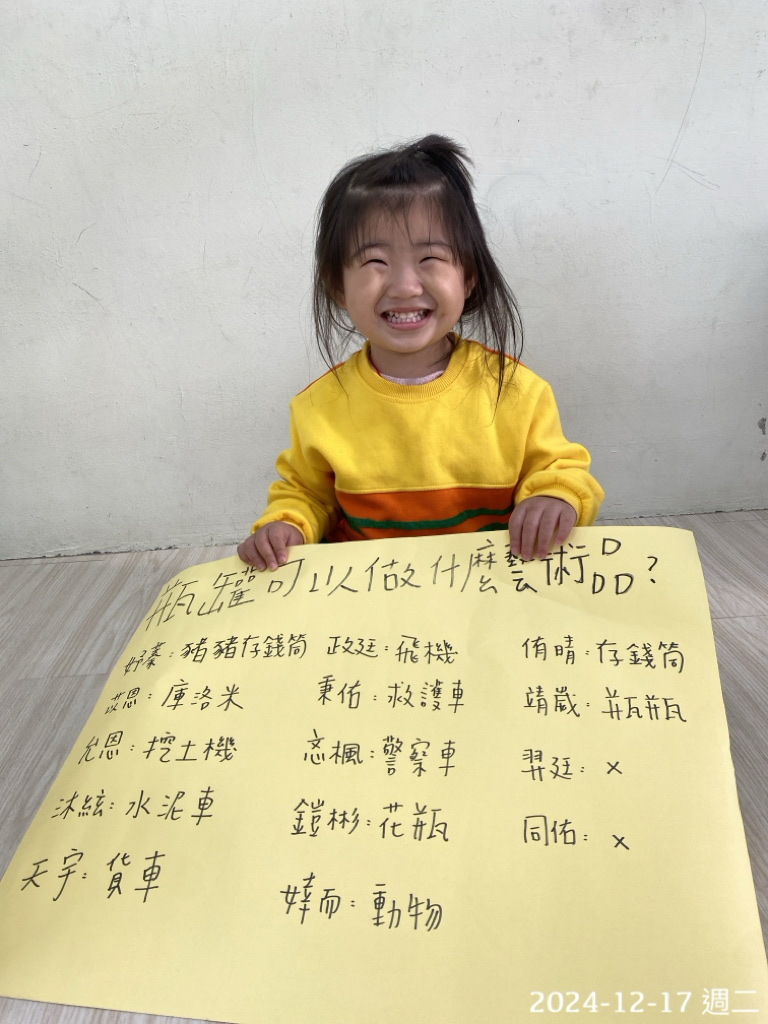 瓶罐可以做什麼藝術品?
妤蓁:豬豬存錢筒
苡恩:庫洛米
允恩:挖土機
沐絃:水泥車
天宇:貨車
政廷:飛機
秉佑:救護車
忞楓:警察車
鎧彬:花瓶
婞而:動物
侑晴:存錢筒
靖崴:瓶瓶
羿廷:x
同佑:x
2024-12-17 週二